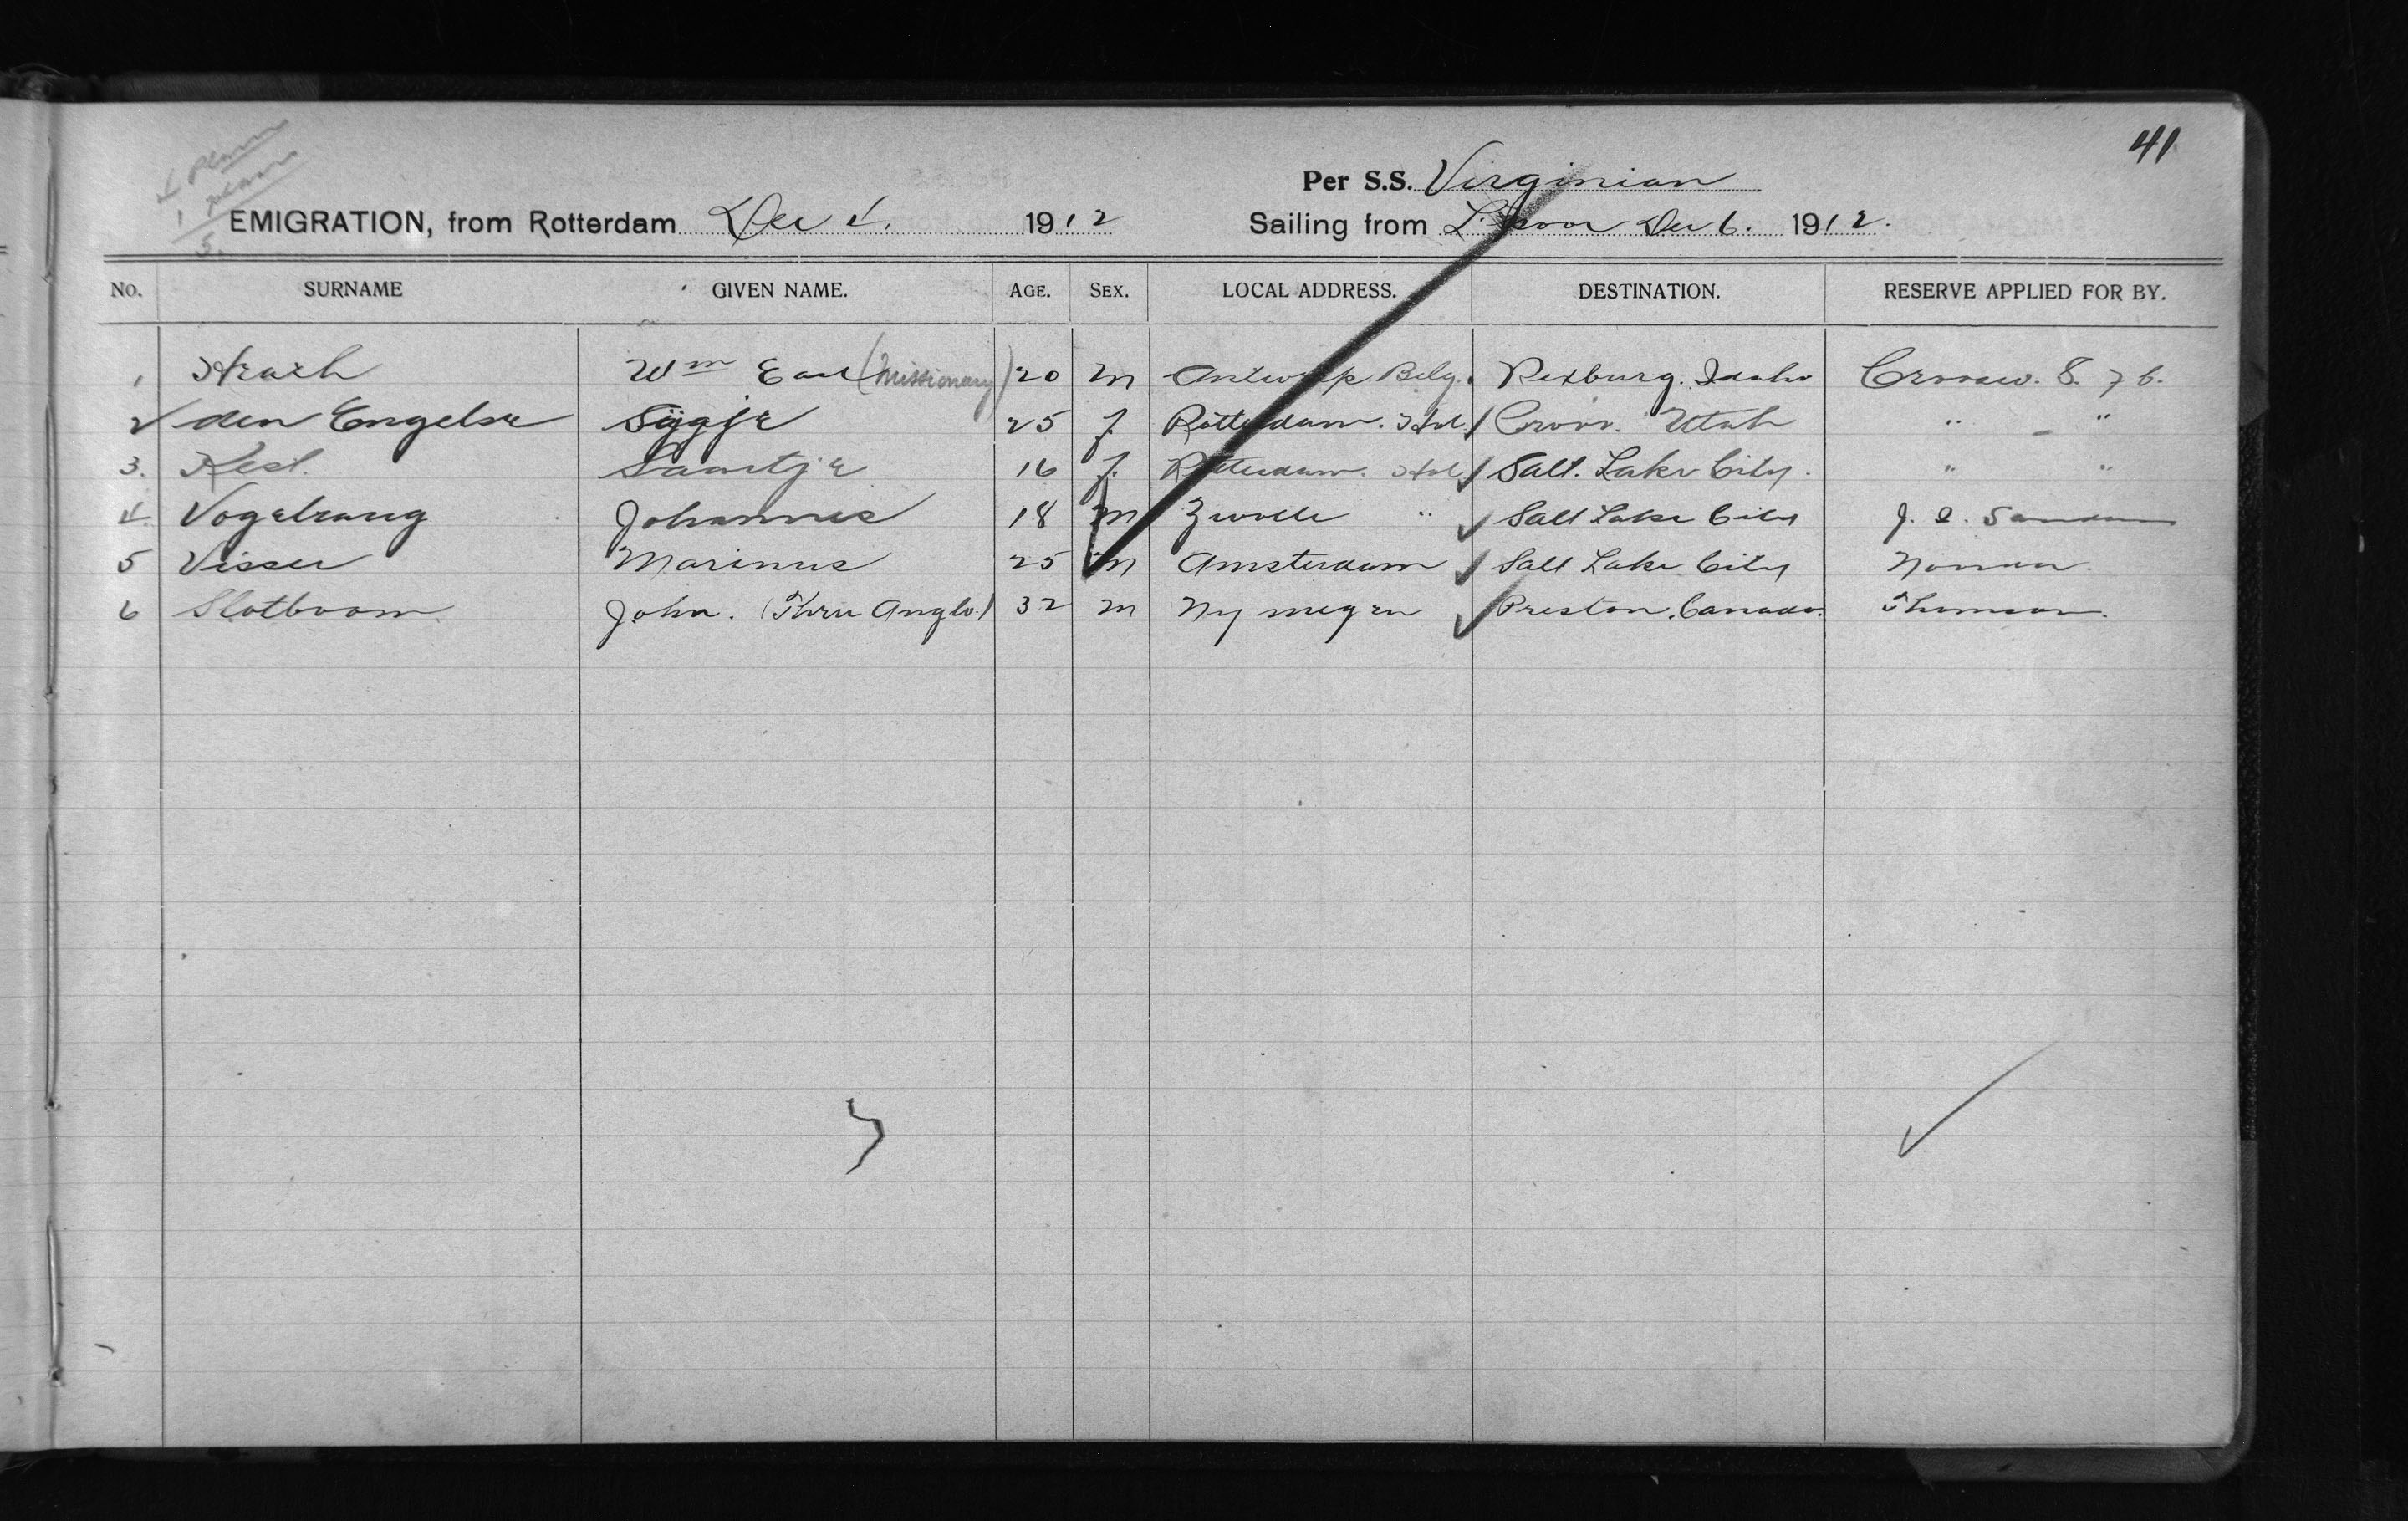 41
Per S.S. Virginian
EMIGRATION, from Rotterdam Dec 4. 1912
Sailing from L'pool Dec 6. 1912.
No. SURNAME GIVEN NAME. AGE. SEX. LOCAL ADDRESS. DESTINATION. RESERVE APPLIED FOR BY.
1 Wm Earl (Missionary) 20 M Antwerp Belg. Rexburg. Idaho
2 den Engelse Sijgje 25 f. Rotterdam. Hol. Utah " "
3. Saartje 16 f. Rotterdam. Hol. Salt. Lake City. " "
4. Vogelzang Johannes 18 M Zwolle " Salt Lake City
5 Visser Marinus 25 M Amsterdam Salt Lake City
6 Slotboom John. (Thru Anglo.) 32 M Nymegen Preston. Canada. Thomson.